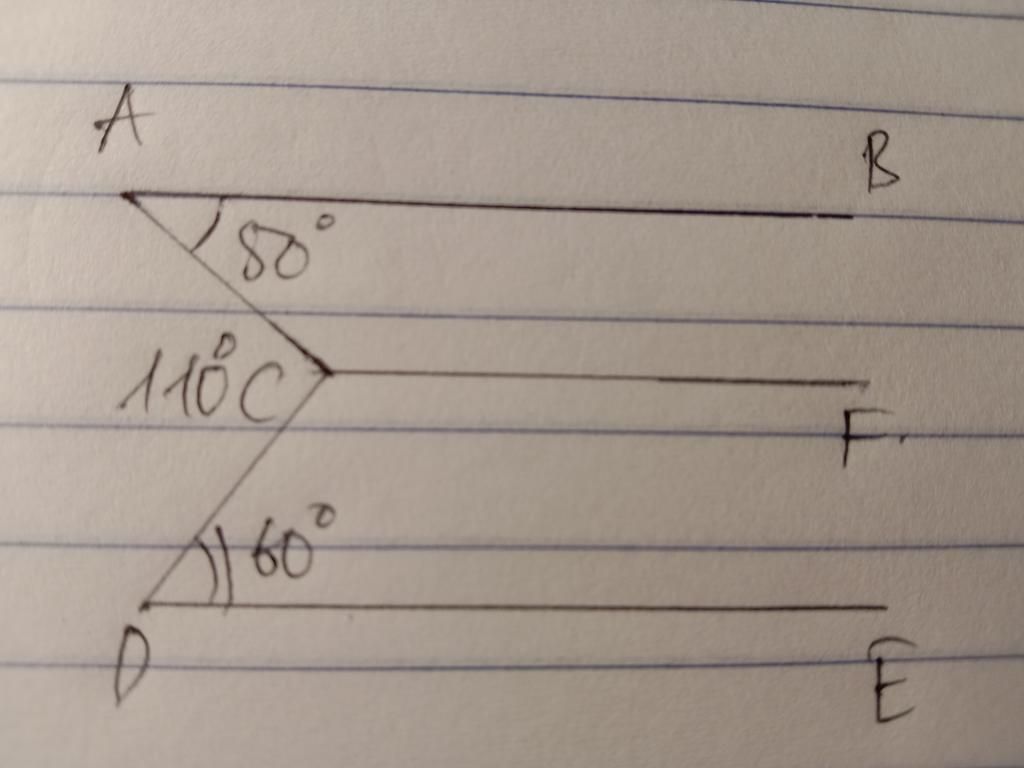 A
B
50°
110° C
F
60°
D
E